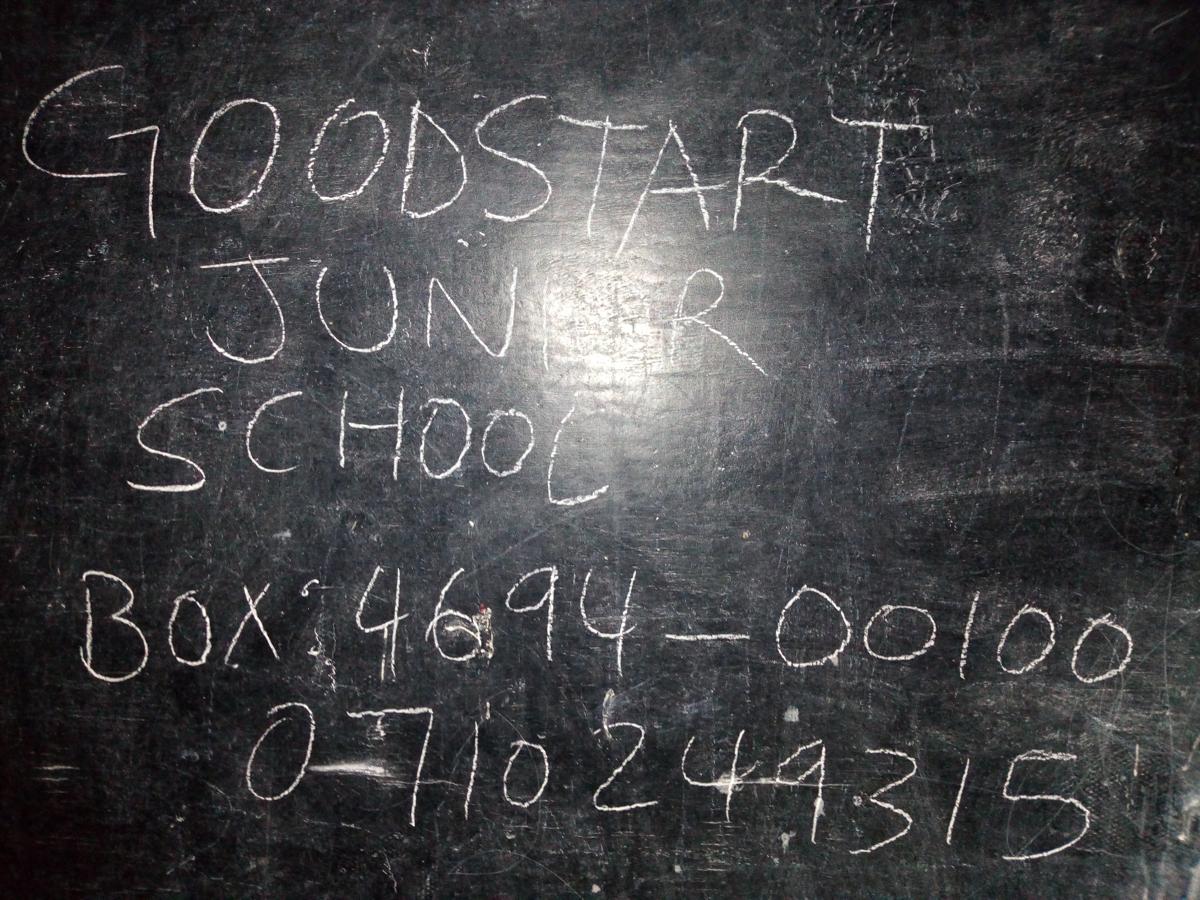 GOODSTART
JUNIOR
SCHOOL
BOX: 4694-00100
0710249315